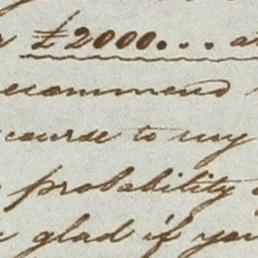 £2000... at
recommend
course to my
probability
glad if you